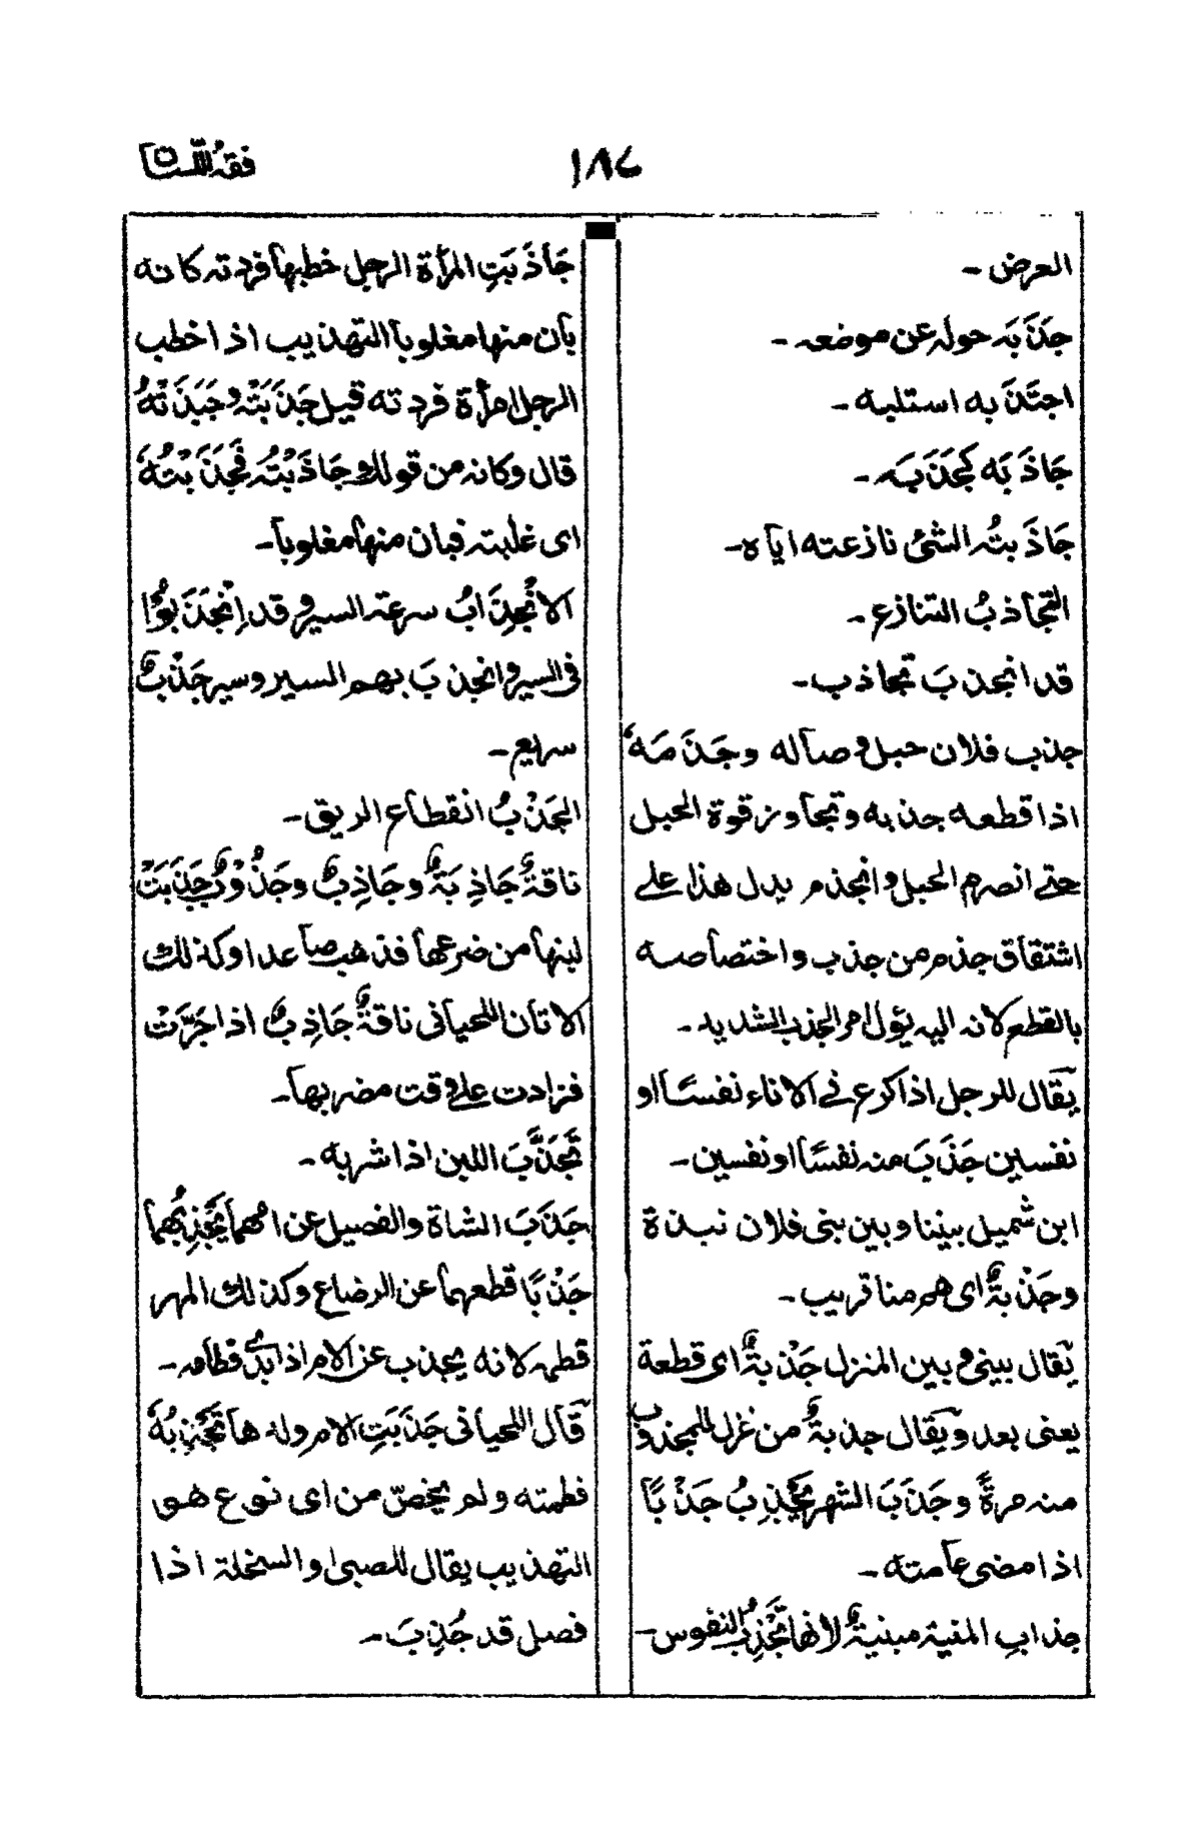 فقہ اللسان
١٨٤
العرض۔
جَذَبَہ حولہ عن موضعہ۔
اجتَذَبه استلبه۔
جَاذَبَه كجَذَبَہ۔
جَاذَبتُہ الشئ نازعته ایاه۔
التجاذبُ التنازع۔
قد انجذبَ تجاذب۔
جذب فلان حبل وصاله وجَذَمَهٗ
اذا قطعه جذبه وتجاوز قوة الحبل
حتى انصرم الحبل وانجذم يدل هذا على
اشتقاق جذم من جذب واختصاصه
بالقطع لانہ الیہ یؤل امر الجذب الشدید۔
يقال للرجل اذا كرع فی الاناء نفسًا او
نفسين جَذَبَ منہ نفسًا او نفسین۔
ابن شميل بيننا وبين بنی فلان نبذة
وجَذْبةٌ ای هم منا قریب۔
يقال بينی وبين المنزل جَذْبةٌ ای قطعة
يعنی بعد ويقال جذبةٌ من غزل للمجذوب
منہ مرةً وجَذَبَ الشهر يَجْذِبُ جَذْبًا
اذا مضى عامته۔
جذابِ المنیة مبنیةٌ لانها تَجْذِبُ النفوس۔
جَاذَبَتِ المرأة الرجل خطبها فردته كانه
بان منها مغلوبا التهذيب اذا خطب
الرجل امرأة فردته قيل جَذَبَتْہ وجَبَذَتْهُ
قال وكانہ من قولك جَاذَبْتُہ فَجَذَبْتُهٗ
ای غلبتہ فبان منها مغلوبا۔
الانْجِذَابُ سرعة السير وقد اِنْجَذَبُوْا
فی السير وانجذبَ بهم السير وسير جَذْبٌ
سریع۔
الجَذْبُ انقطاع الریق۔
ناقةٌ جَاذِبَةٌ وجَاذِبٌ وجَذُوْبٌ جَذَبَتْ
لبنها من ضرعها فذهب صاعدا وكذلك
الاتان اللحیانی ناقةٌ جَاذِبٌ اذا جَرَّتْ
فزادت على وقت مضربها۔
تَجَذَّبَ اللبن اذا شربه۔
جَذَبَ الشاة والفصيل عن امهما يَجْذِبُهما
جَذْبًا قطعهما عن الرضاع وكذلك المهر
فطمہ لانه يجذب عن الام اذا بدئ فطامہ۔
قال اللحیانی جَذَبَتِ الام ولدها تَجْذِبُهٗ
فطمته ولم يخصّ من ای نوع هو
التهذيب يقال للصبی او السخلة اذا
فصل قد جُذِبَ۔